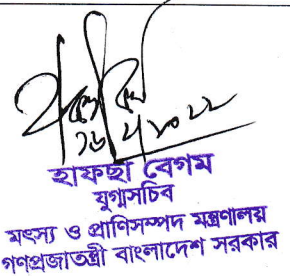 হাফছা বেগম
যুগ্মসচিব
মৎস্য ও প্রাণিসম্পদ মন্ত্রণালয়
গণপ্রজাতন্ত্রী বাংলাদেশ সরকার